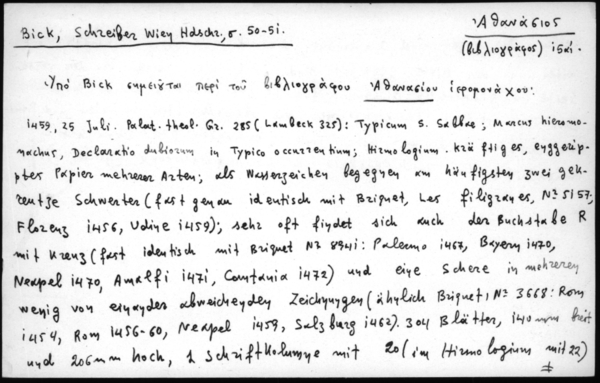 Bick, Schreiber Wien Hdschr., σ. 50-51.
Ἀθανάσιος
(βιβλιογράφος) ιδαί.
Ὑπό Bick σημειοῦται περί τοῦ βιβλιογράφου Ἀθανασίου ἱερομονάχου:
1459, 25 Juli. Palat. theol. Gr. 285 (Lambeck 325): Typicum S. Sabbae; Marcus hieromo-
nachus, Declaratio dubiorum in Typico occurrentium; Hirmologium. Kräftiges, enggeripp-
ptes Papier mehrerer Arten; als Wasserzeichen begegnen am häufigsten zwei gek-
reutze Schwerter (fast genau identisch mit Briquet, Les filigranes, No 5157,
Florenz 1456, Udine 1459); sehr oft findet sich auch der Buchstabe R
mit Kreuz (fast identisch mit Briquet No 8941: Palermo 1467, Bayern 1470,
Neapel 1470, Amalfi 1471, Cantania 1472) und eine Schere in mehreren
wenig von einander abweichenden Zeichnungen (ähnlich Briquet, No 3668: Rom
1454, Rom 1456-60, Neapel 1459, Salzburg 1462). 304 Blätter, 140 mm breit
und 206 mm hoch, 1 Schriftkolumne mit 20 (im Hirmologium mit 22)